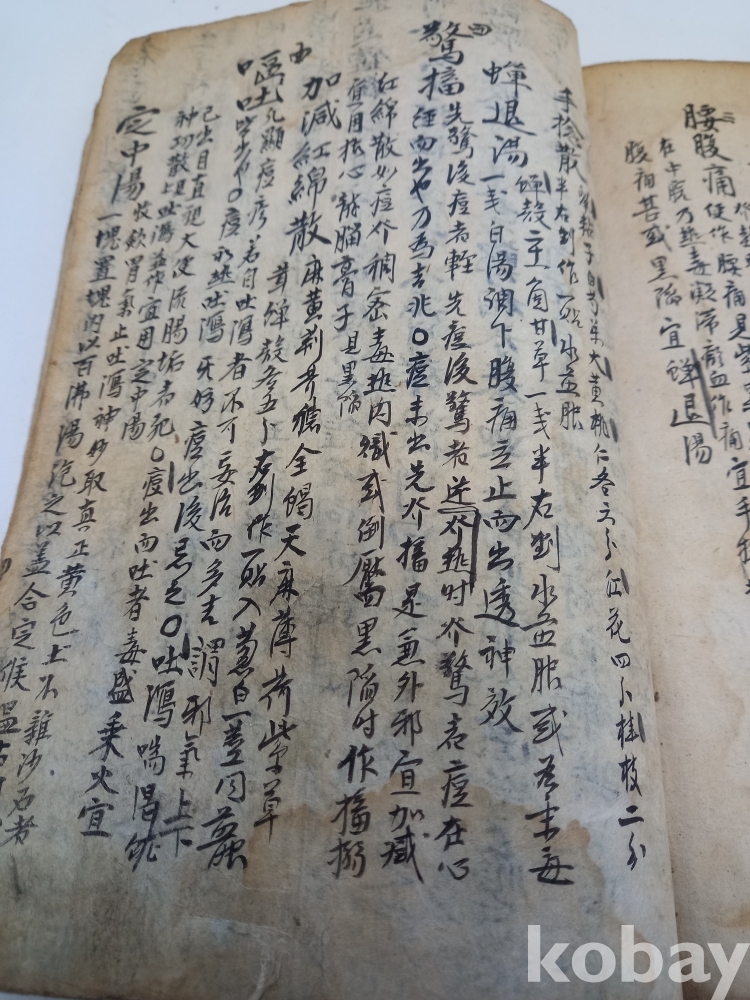 腰腹痛 使作腰痛是
在中脘乃熱毒凝滯瘀血作痛宜手
腹痛甚或黑陷宜蟬退湯
手捻散 大黃桃仁各六分紅花四分桂枝二分
半右剉作一貼水煎服
蟬退湯 蟬殼主角甘草一戔半右剉水煎服或爲末每
一戔白湯調下腹痛立止而出透神效
驚搐 先驚後痘者輕先痘後驚者逆介熱時介驚者痘在心
經而出也乃爲吉兆〇痘未出先介搐是兼外邪宜加减
紅綿散如痘介稠密毒熱內熾或倒靨黑陷時作搐搦
宜用抱心龍腦膏子見黑陷
加減紅綿散 麻黃荊芥穗全蝎天麻薄荷紫草
茸蟬殼各五分右剉作一貼入蔥白一莖同煎
嘔吐 凡顯痘疹若自吐瀉者不可妄治而多吉謂邪氣上下
皆出也〇痘初熱吐瀉 好痘出後忌之〇吐瀉喘渴
已出目直視大便流腸垢者死〇痘出而吐者毒盛乘火宜
神功散見吐瀉並作宜用定中湯
定中湯 收歛胃氣止吐瀉神妙取真正黃色土不雜沙石者
一塊置塊內以百沸湯泡之以盖合定候溫
kobay